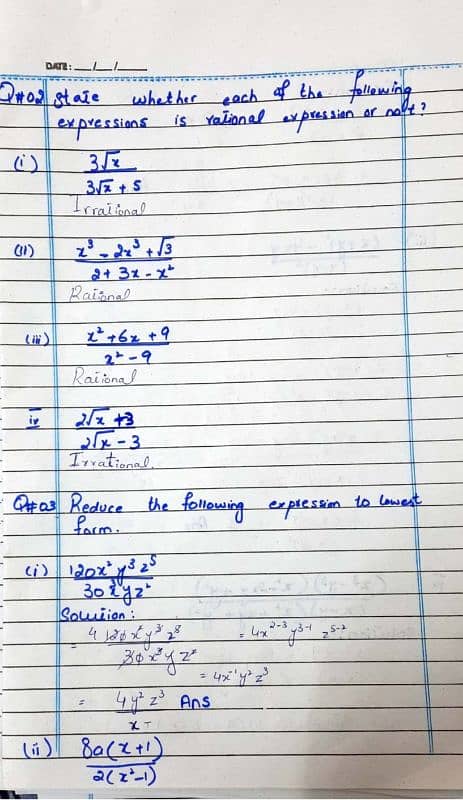 DATE: __/__/____
Q#02 State whether each of the following
expressions is rational expression or not?
(i) 3√x / 3√x + 5
Irrational
(ii) x³ - 2x³ + √3 / 2 + 3x - x²
Rational
(iii) x² + 6x + 9 / x² - 9
Rational
iv 2√x + 3 / 2√x - 3
Irrational.
Q#03 Reduce the following expression to lowest
form.
(i) 120x² y³ z⁵ / 30 x³ y z²
Solution :
= 4 120 x² y³ z⁵ / 30 x³ y z² = 4x²⁻³ y³⁻¹ z⁵⁻²
= 4x⁻¹ y² z³
= 4y² z³ / x Ans
(ii) 8a(x+1) / 2(x²-1)